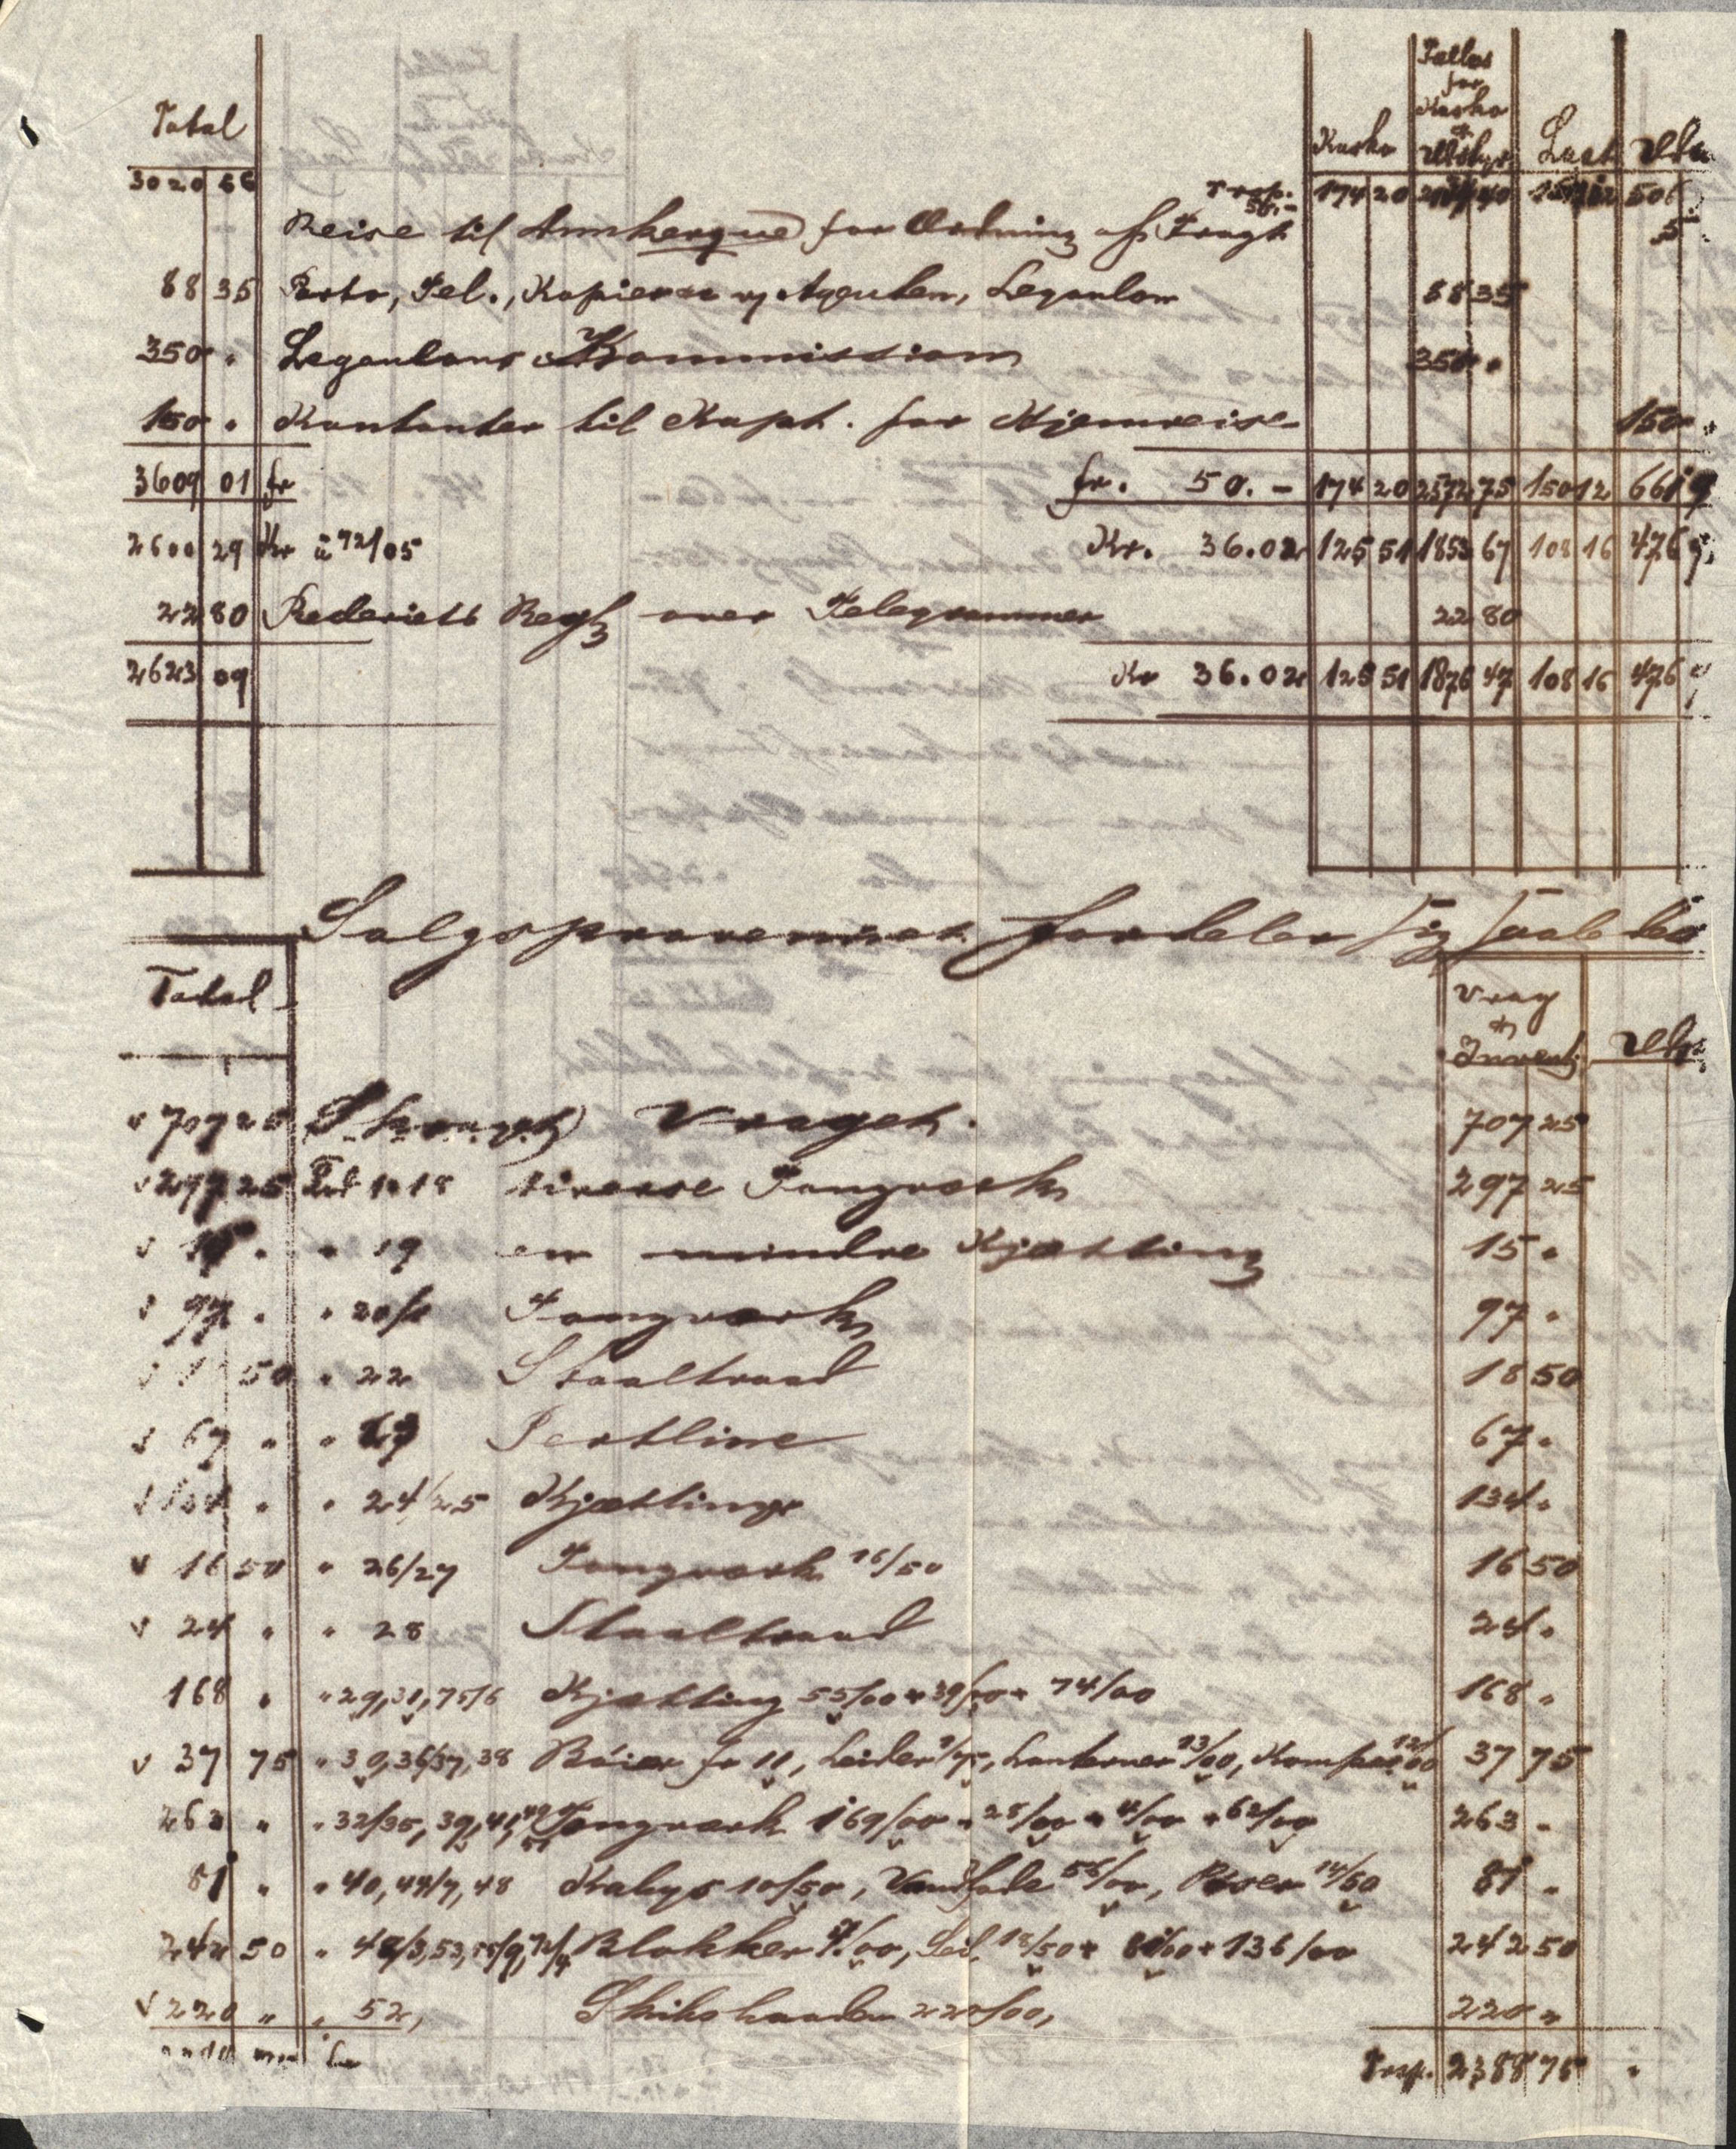 Total
Kasko
Fælles
for
Kasko
&
Udstyr
Last
3020 66 Trsp. 50.- 174 20 150 12 506
Reise til for Ordning af Fragt 5
88 35 Porto, Tel., Kopier Agenten, Legankom 88 35
350 " Kommission 350 "
150 " Kontanter til Kapt. for Hjemreise 150 "
3609 01 fr fr. 50.- 174 20 2572 75 150 12 661 9
2600 29 Kr à 72/05 Kr. 36.02 125 51 1853 67 108 16 476 9
22 80 Rederiets Regn over Telegrammer 22 80
2623 09 Kr 36.02 125 51 1876 47 108 16 476 9
Salgsprovenuet fordeler sig saaledes
Total
Vrag
&
Invent
v 707 25 Skroget Vraget. 707 25
v 297 25 1 a 18 diverse Tougværk 297 25
v 15 " " 19 en mindre Kjætting 15 "
v 97 " " 20/1 Tougværk 97 "
v 50 " 22 Staaltraad 18 50
v 67 " " 23 Pertline 67 "
v 134 " " 24/25 Kjættinge 134 "
v 16 50 " 26/27 Tougværk 16/50 16 50
v 24 " " 28 Staaltraad 24 "
168 " " 29, 31, 75/6 Kjætting 55/00 + 39/00 + 74/00 168 "
v 37 75 " 30, 36/37, 38 Bøier fr 11, Leider 1/75, Lanterner 13/00, Kompas 12/00 37 75
263 " " 32/35, 39, 41, 49 51 Tougværk 169/00 + 28/00 + 4/00 + 62/00 263 "
81 " " 40, 44/7, 48 Kabys 10/50, Vandfade 56/00, 14/50 81 "
242 50 " Blokker /00, Seil 18/50 + /00 + 136/00 242 50
v 220 " " 52, Skibsbaaden 220/00, 220 "
Trsp. 2388 75 "